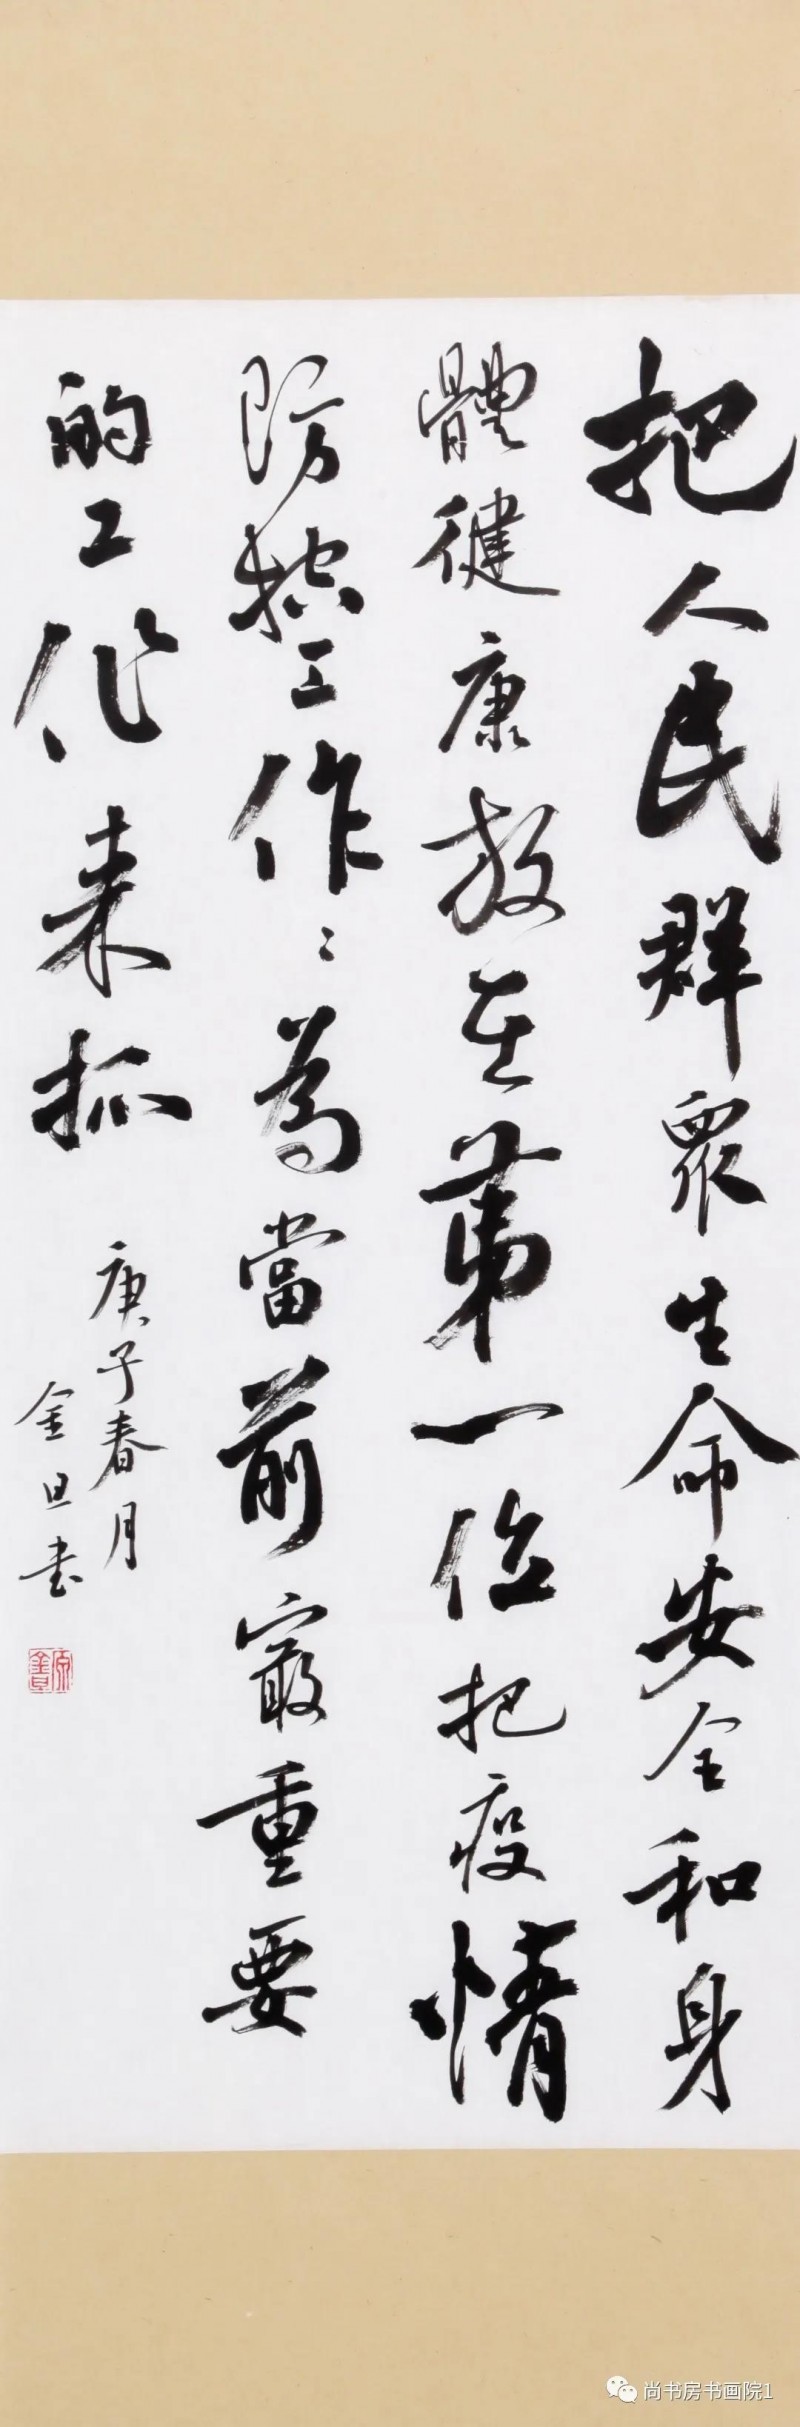 把人民群眾生命安全和身
體健康放在第一位把疫情
防控工作〻為當前最重要
的工作来抓
庚子春月
金旦书
尚书房书画院1